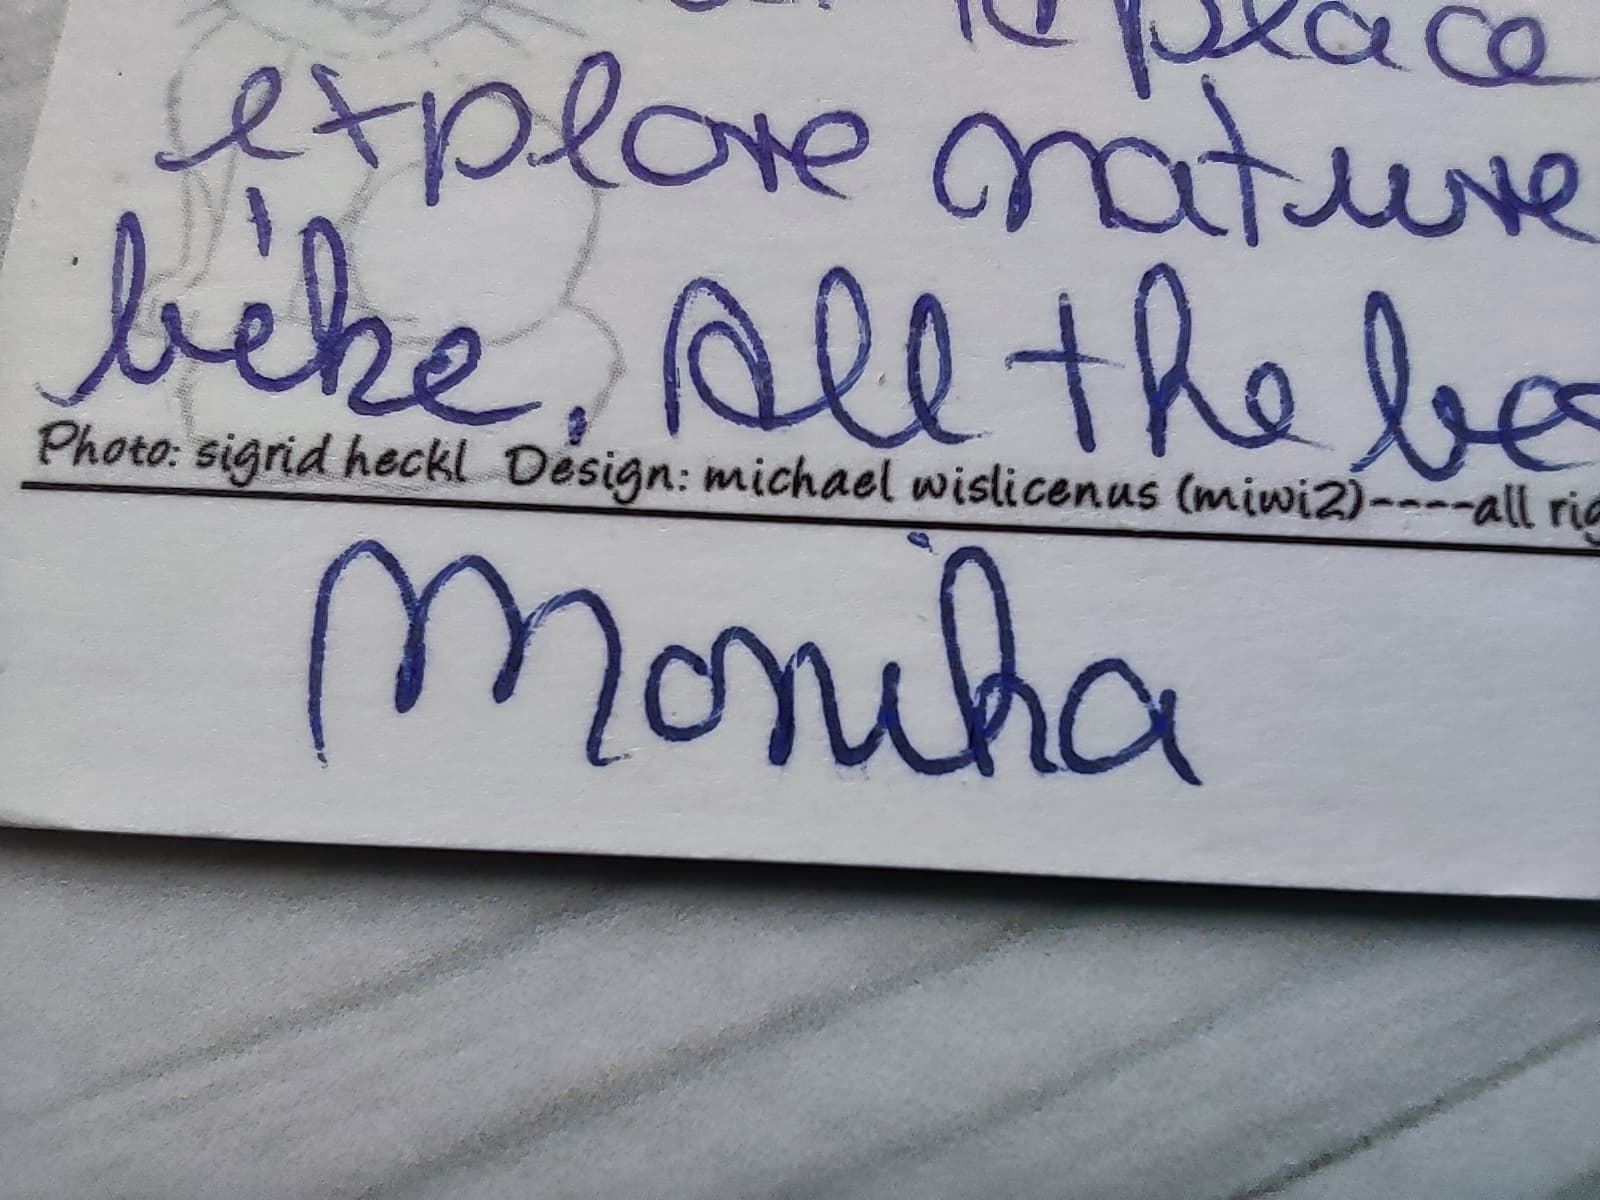 place
explore nature
bike. All the be
Photo: sigrid heckl Design: michael wislicenus (miwi2)----all rig
Monika